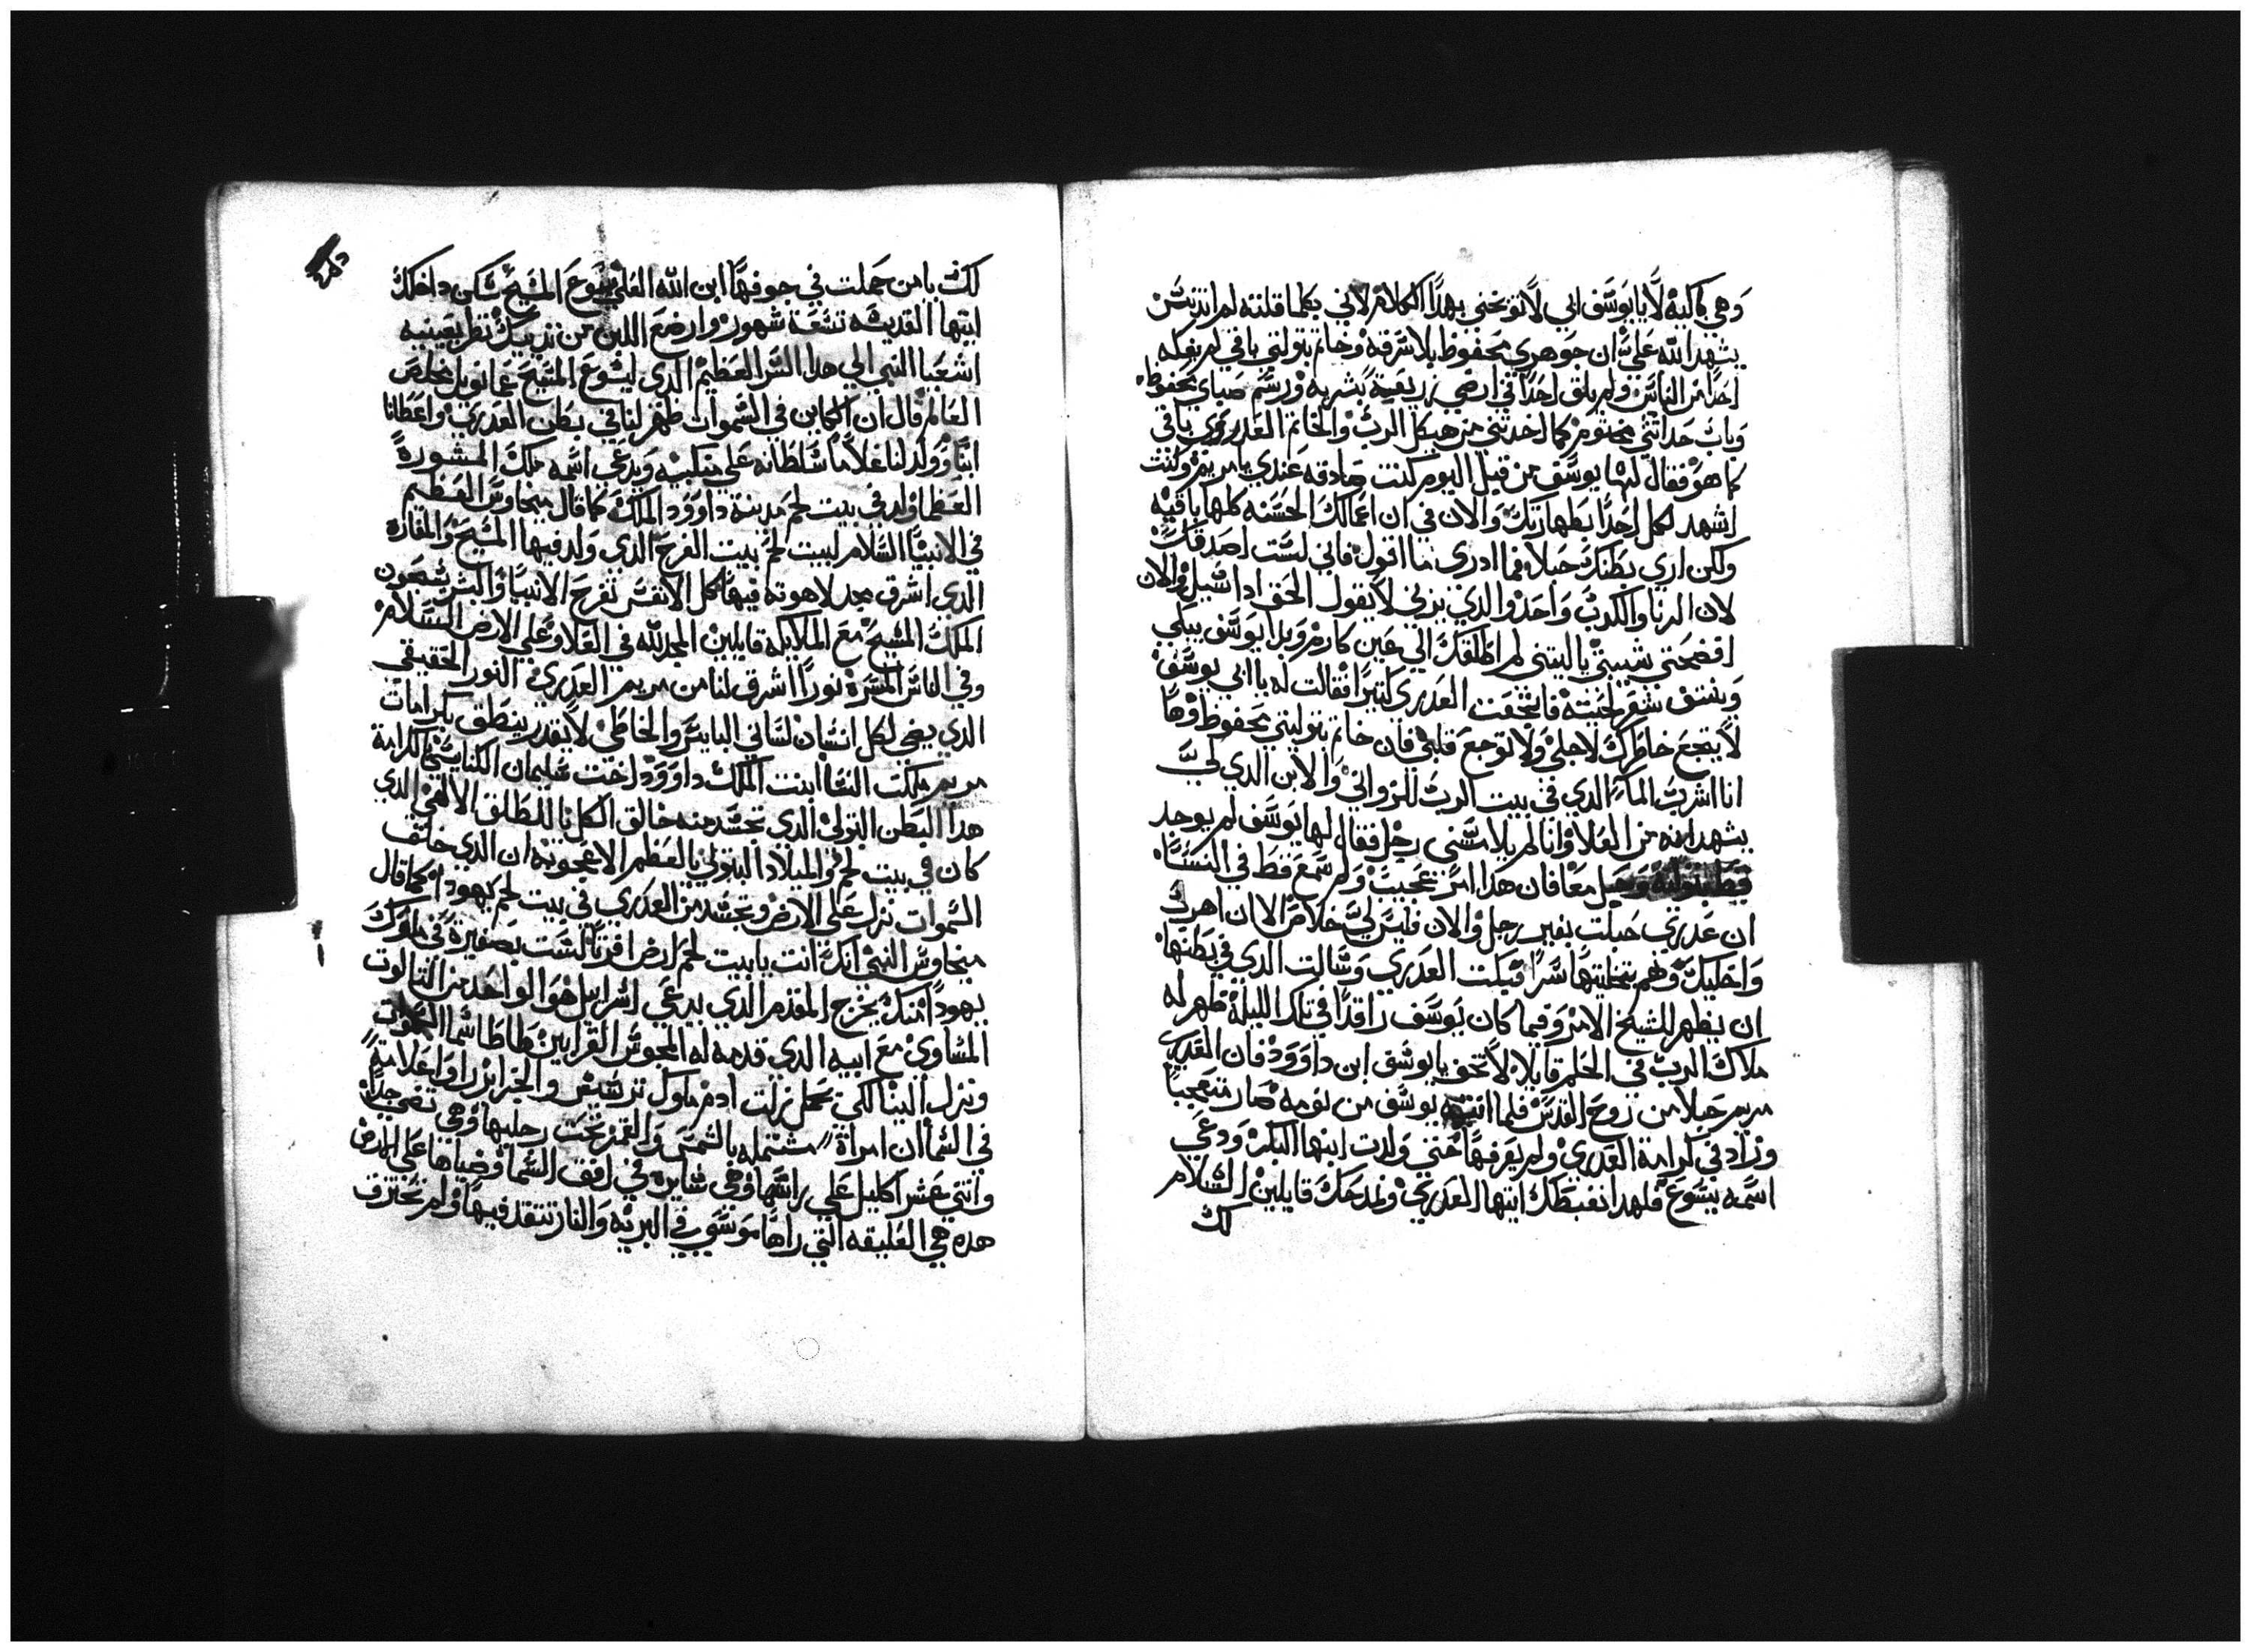 وهي باكيه لا يا يوسف ابي لا توبخني بهدا الكلام لاني بكلما قلته لم اتدنس
يشهد الله علي ان جوهري محفوظ بلا سرقه وخاتم بتوليتي باقي لم يفكه
احدا من الناس ولم يلق احدا في ارضي زريعة بشريه ورسم صباي محفوظ
وباب حداثتي مختوم كما اخدتني من هيكل الرب والخاتم العدريري باقي
كما هو فقال لها يوسف من قبل اليوم كنت صادقه عندي يا مريم وكنت
اشهد لكل احدا بطهارتك والان في ان اعمالك الحسنه كلها باقيه
ولكن اري بطنك حبلا فما ادري ما اقول فاني لست اصدقك
لان الزنا والكدب واحد والذي يزني لا يقول الحق ادا سيل والان
افضحتي شيبتي يا ليتني لم اطلقك الي عين كارم وبدا يوسف يبكي
وينتف شعر لحيته فانتحفت العدري كتيرا فقالت له يا ابي يوسف
لا يتجع خاطرك لاجلي ولا توجع قلبي فان خاتم بتوليتي محفوظ وها
انا اشرب الماء الدي في بيت الرب للزواني والابن الدي لي
يشهد انه من العلا وانا لم يلامسني رجل فقال لها يوسف لم يوجد
قط بتوليه وحبل معا فان هدا امر عجيب ولم سمع قط في النسا
ان عدري حبلت بغير رجل والان فليس لي خلاص الا ان اهرب
واخليك وهم بتخليتها سرا فبكت العدري وسالت الدي في بطنها
ان يظهر للشيخ الامر وفيما كان يوسف راقدا في تلك الليلة ظهر له
ملاك الرب في الحلم قايلا لا تخف يا يوسف ابن داوود فان العدري
مريم حبلا من روح القدس فلما انتبه يوسف من نومه صار متعجبا
وزاد في كرامة العدري ولم يعرفها حتي ولدت ابنها البكر ودعي
اسمه يسوع فلهدا نغبطك ايتها العدري ونمدحك قايلين السلام
لك
لك يا من حملت في جوفها ابن الله العلي يسوع المسيح سكن داخلك
ايتها القديسه تسعة شهور وارضع اللبن من تدييك نظر بعينيه
اشعيا النبي الي هدا السر العظيم الدي ليسوع المسيح عمانويل مخلص
العالم قال ان الكاين في السموات ظهر لنا في بطن العدري واعطانا
ابنا وولد لنا غلاما سلطانه علي منكبيه ويدعي اسمه ملك المشورة
العظما ولد في بيت لحم مدينة داوود الملك كما قال ميخاوس العظيم
في الانبيا السلام لبيت لحم بيت الفرح الدي ولد فيها المسيح والمغارة
الدي اشرق مجد لاهوته فيها كل الانفس تفرح الانبيا والبشر يتبعون
الملك المسيح مع الملايكه قايلين المجد لله في العلا وعلي الارض السلام
وفي الناس المسرة نورا اشرق لنا من مريم العدري النور الحقيقي
الدي يضي لكل انسان لساني اليابس والخاطي لا يقدر ينطق بكرامات
مريم ملكت النسا ابنت الملك داوود اخت سليمان الكنايسي الكرامة
هدا البطن البتولي الدي تجسد منه خالق الكل بالطلق الالهي الدي
كان في بيت لحم والميلاد البتولي يا لعظم الاعجوبه ان الدي خلق
السموات نزل علي الارض وتجسد من العدري في بيت لحم يهودا كما قال
ميخاوس النبي انك انت يا بيت لحم ارض افراتا لست بصغيرة في ملوك
يهودا منك يخرج المقدم الدي يرعي اسراييل هو الواحد من التالوت
المساوي مع ابيه الدي قدمه له المجوس القرابين طاطا سما السموات
ونزل الينا لكي يحمل زلت ادم ملوك ترسيس والجزاير راوا علامة
في السما ان امراة مشتمله بالشمس والقمر تحت رجليها وهي تضي جدا
واتني عشر اكليل علي راسها وهي سايره في افق السما وضياها علي الارض
هده هي العليقه التي راها موسي في البريه والنار تتقد فيها ولم تحترق